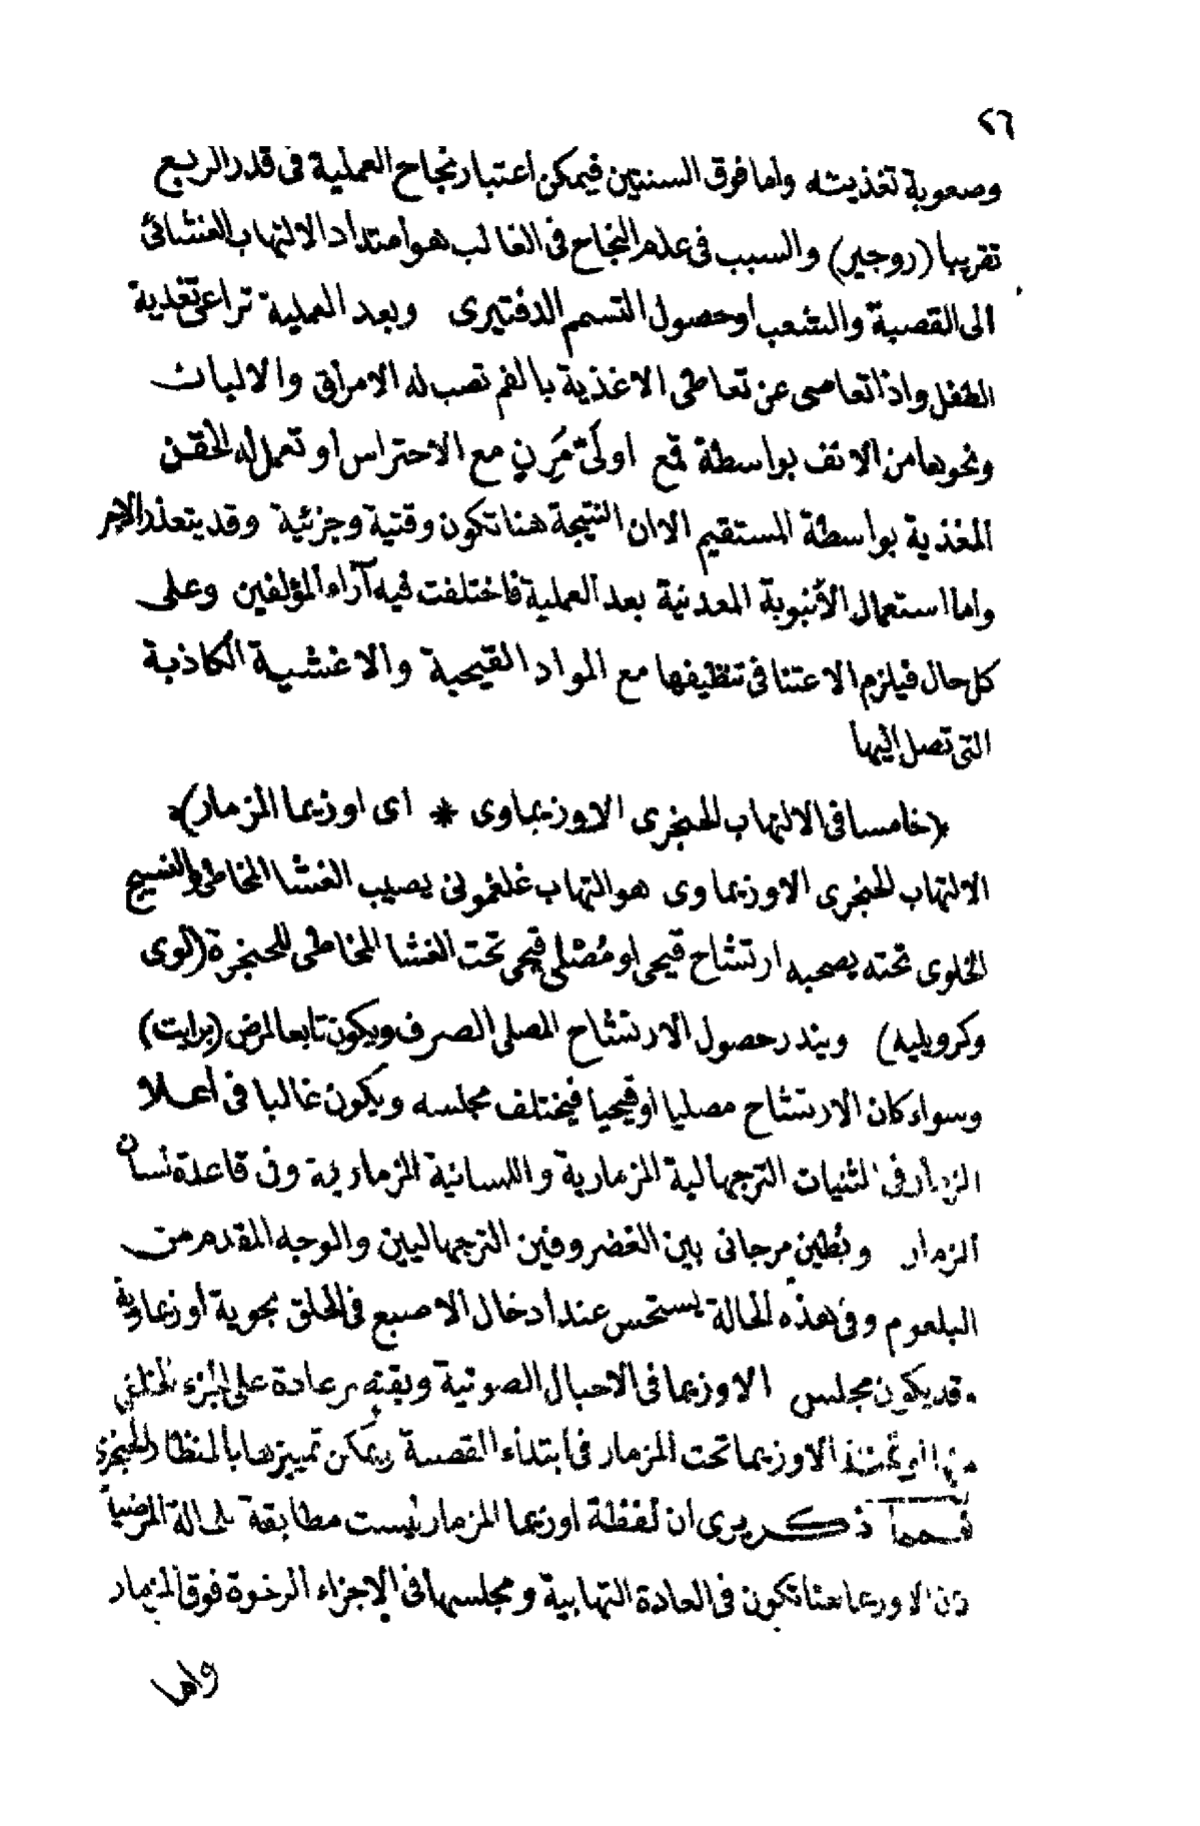 ٢٦
وصعوبة تغذيته واما فوق السنتين فيمكن اعتبار نجاح العملية فى قدر الربع
تقريبا (روجير) والسبب فى عدم النجاح فى الغالب هو امتداد الالتهاب الغشائى
الى القصبة والشعب او حصول التسمم الدفتيرى وبعد العملية تراعى تغذية
الطفل واذا تعاصى عن تعاطى الاغذية بالفم تصب له الامراق والالبان
ونحوها من الانف بواسطة قمع او لَىّ مَرِن مع الاحتراس او تعمل له الحقن
المغذية بواسطة المستقيم الا ان النتيجة هنا تكون وقتية وجزئية وقد يتعذر الامر
واما استعمال الأنبوبة المعدنية بعد العملية فاختلفت فيه آراء المؤلفين وعلى
كل حال فيلزم الاعتنا فى تنظيفها مع المواد القيحية والاغشية الكاذبة
التى تصل إليها
(خامسا فى الالتهاب الحنجرى الاوزيماوى * اى اوزيما المزمار)
الالتهاب الحنجرى الاوزيماوى هو التهاب غلغمونى يصيب الغشا المخاطى والنسيج
الخلوى تحته يصحبه ارتشاح قيحى او مُصْلى قيحى تحت الغشا المخاطى للحنجرة (لوى
وكرويليه) ويندر حصول الارتشاح المصلى الصرف ويكون تابعا لمرض (برايت)
وسواء كان الارتشاح مصليا او قيحيا فيختلف مجلسه ويكون غالبا فى أعلا
المزمار فى الثنيات الترجهالية المزمارية واللسانية المزمارية وفى قاعدة لسان
المزمار وبُطين مرجانى بين الغضروفين الترجهاليين والوجه المقدم من
البلعوم وفى هذه الحالة يستحس عند ادخال الاصبع فى الحلق بحوية أوزيماوية
قد يكون مجلس الاوزيما فى الاحبال الصوتية ويقتصر عادة على الجزء الخلفى
منها او تمتد الاوزيما تحت المزمار فى ابتداء القصبة ويمكن تمييزها بالمنظار الحنجرى
ذكر يرى ان لفظة اوزيما المزمار ليست مطابقة لحالة المرض
لان الاوزيما هنا تكون فى العادة التهابية ومجلسها فى الاجزاء الرخوة فوق المزمار
واما